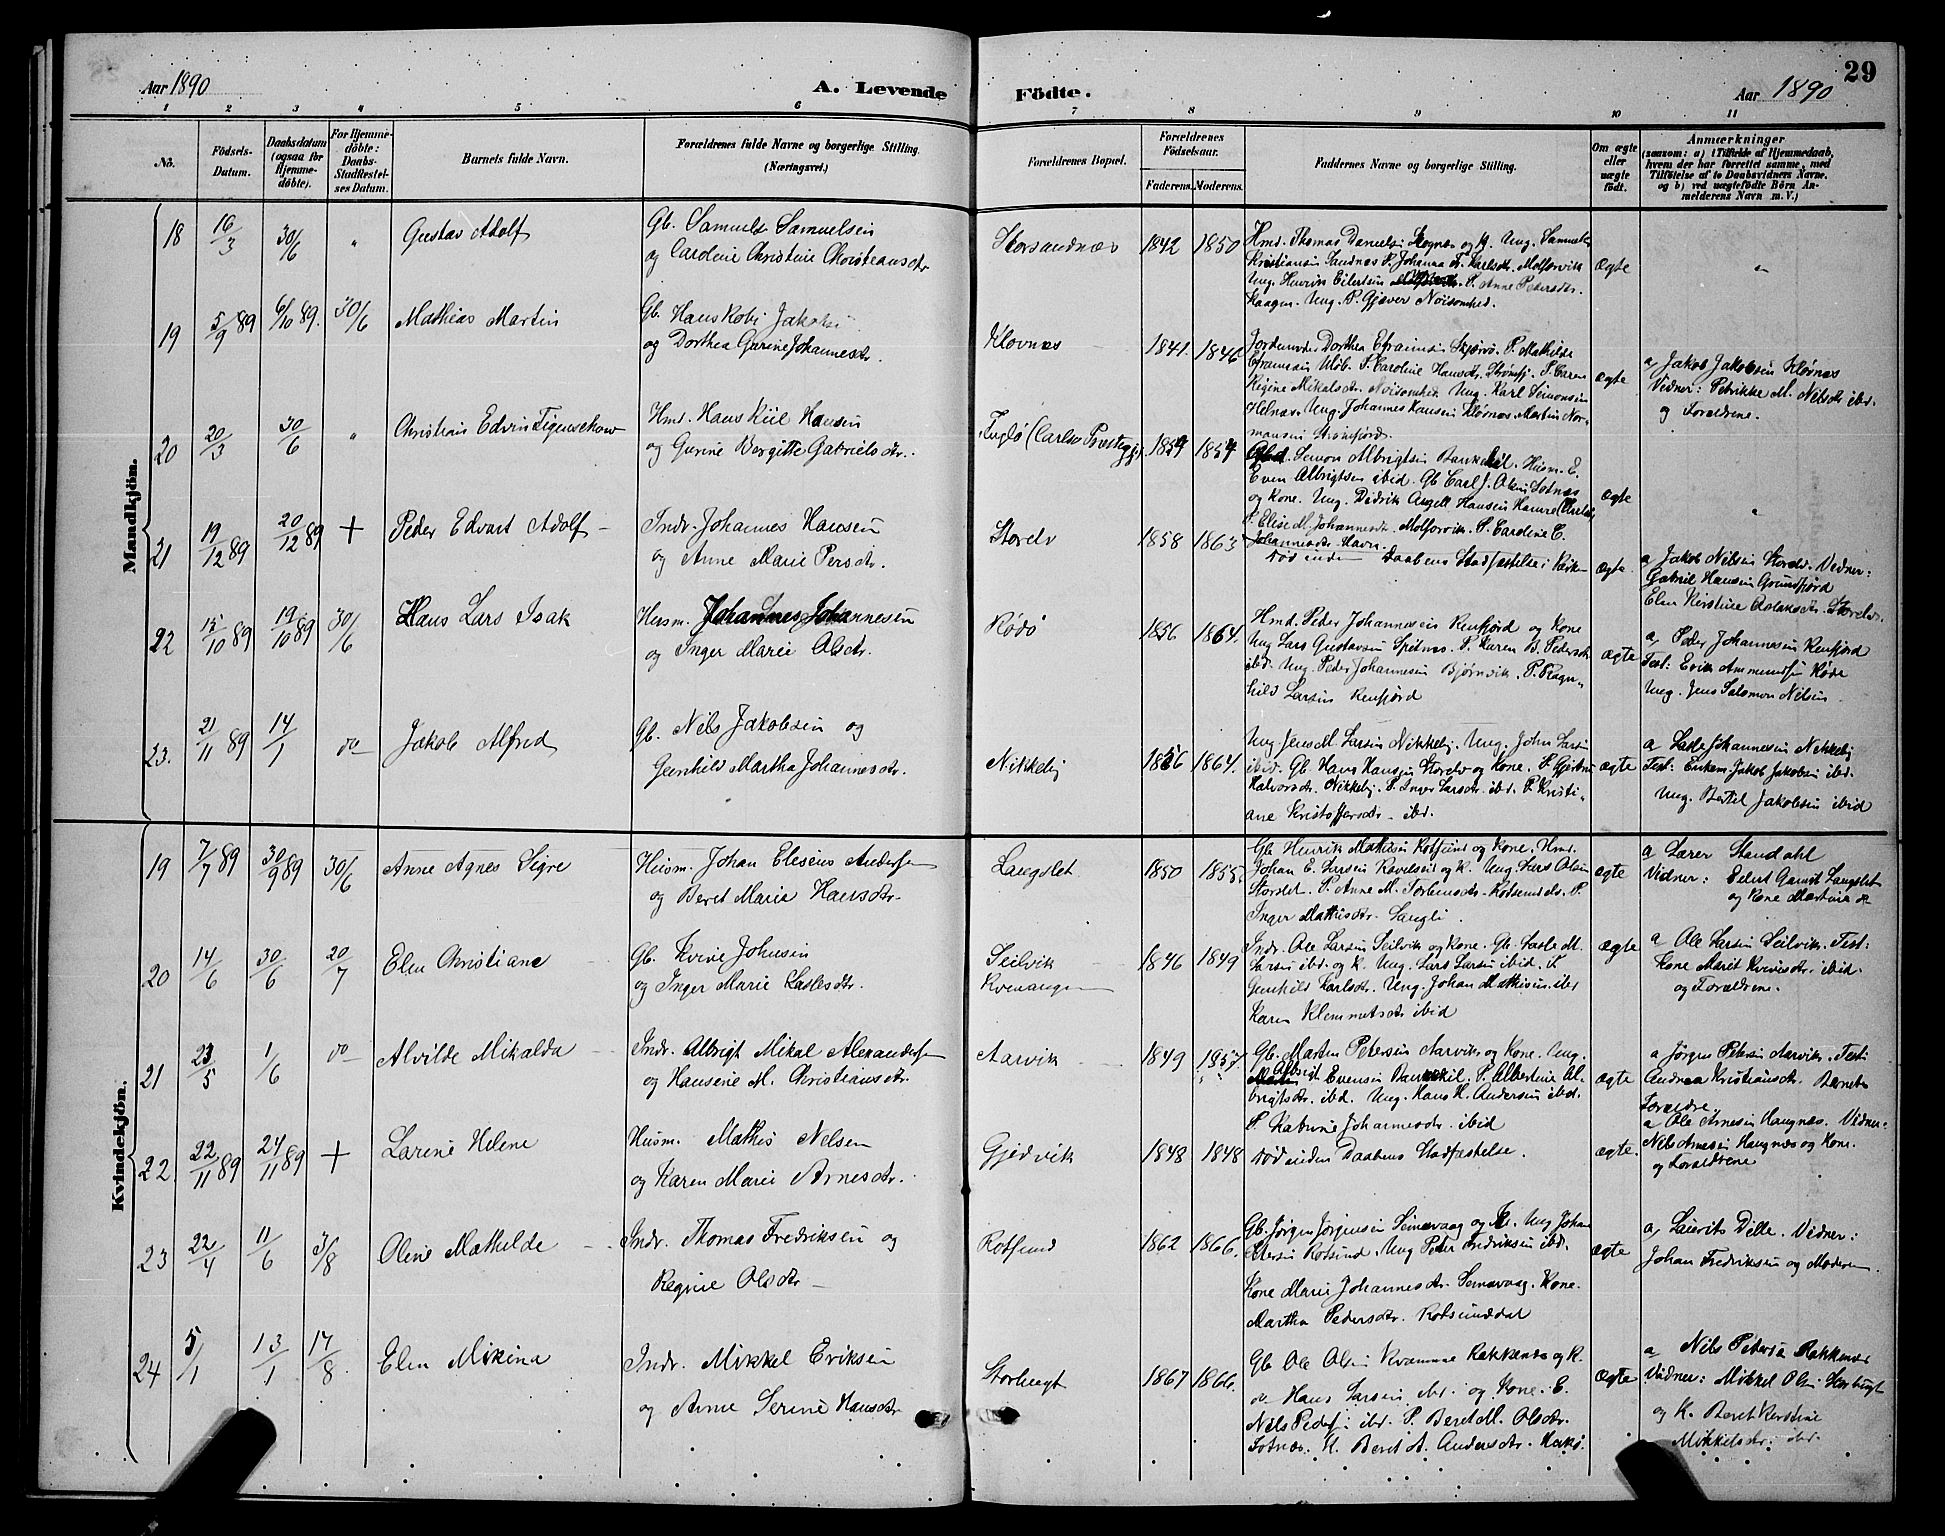 29
Aar 1890 A. Levende Födte. Aar 1890
1 2 3 4 5 6 7 8 9 10 11
No. Födsels-Datum. Daabsdatum (ogsaa for Hjemmedöbte). For Hjemmedöbte: Daabs-Stadfæstelses Datum. Barnets fulde Navn. Forældrenes fulde Navne og borgerlige Stilling. (Næringsvei.) Forældrenes Bopæl. Forældrenes Födselsaar. Faderens. Moderens. Faddernes Navne og borgerlige Stilling. Om ægte eller uægte födt. Anmærkninger
(saasom: a) i Tilfælde af Hjemmedaab,
hvem der har forrettet samme, med
Tilföielse af to Daabsvidners Navne.
og b) ved uægtefödte Börn An-
melderens Navn m. V.)
Mandkjön.
18 16/3 30/6 " Gustav Adolf
Gb. Samuel Samuelsen
og Caroline Christine Christeansdtr
Storsandnæs 1842 1850
Hmd. Thomas Danielsen og K. Ung. Samuel
Kristiansen Sandnæs P. Johanna Karlsdtr. Molforvik
Ung. Henrik Eilertsen P. Anne Pedersdtr.
Kaagen. Ung. P. Gjæver Nöisomhed.
ægte "
19 5/9 89 6/10 89. 30/6 Mathias Martin
Gb. Hans Kobi Jakobs
og Dorthea Gurine Johannesdtr.
Klovnæs 1841. 1846
Jordemoder Dorthea Efraimsen Skjærvö. P. Mathilde
Efraimsen P. Caroline Hansdtr. Strömfj. P. Caren
Regine Mikalsdtr. Nöisomhed. Ung. Karl Simonsen
Helnæs. Ung. Johannes Hansen Klovnæs. Martin Nor-
mansen Strömfjord.
ægte
a, Jakob Jakobsen Klovnæs
Vidner: Petrikke M. Nilsdtr ibd.
og Forældrene.
20 20/3 30/6 " Christian Edvin Figenschow
Hmd. Hans Kiil Hansen
og Gurine Bergitte Gabrielsdtr.
Fuglö (Carlsö Prestegj.) 1854 1854
Simon Albrigtsen Bankekil. Husm. E.
Even Albrigtsen ibid. Gb Carl J. Olsen Sotnæs
og Kone. Ung. Didrik Angell Hansen Hamre
P. Elise M. Johannesdtr Molforvik. P. Caroline C.
Johannesdtr Havn.
ægte "
21 19/12 89 20/12 89 + Peder Edvart Adolf
Indr. Johannes Hansen
og Anne Marie Persdtr.
Storelv 1858 1863
Död inden Daabens Stadfæstelse i Kirk
ægte.
a, Jakob Nilsen Storelv. Vidner:
Gabriel Hansen Grundfjord
Elen Kirstine Storelv.
22 15/10 89 19/10 89 30/6 Hans Lars Isak
Husm. Johannes Johannesen
og Inger Marie Olsdtr.
Rödö 1856 1864.
Hmd. Peder Johannesen Reinfjord og Kone
Ung Lars Gustavsen Spötnæs. P. Karen B. Pedersdtr
ibd. Ung. Peder Johannesen Björnvik. P. Ragn-
hild Larsen Reinfjord
ægte
a, Peder Johannesen Reinfjord
Test: Erik Ammundsen Röde
Ung. Jens Salomon Nilsen
23. 21/11 89 14/1 do Jakob Alfred
Gb. Nils Jakobsen og
Gunhild Martha Johannesdtr.
Nikkeby 1856 1864.
Ung Jens M Larsen Nikkeby. Ung. John Larsen
ibid. Gb. Hans Hansen Storelv og Kone. P Gjertine
Halvorsdtr. Nikkeby. P. Inger Larsdtr. ibd. P. Kristi-
ane Kristoffersdtr. ibd.
ægte
a Lasse Johannesen Nikkeby
Test: Enkem. Jakob Jakobsen ibd.
Ung. Bertel Jakobsen ibid
Kvindekjön.
19 7/7 89 30/9 89 30/6 Anne Agnes Sigre
Husm. Johan Elesius Anders
og Beret Maria Hansdtr.
Langslet 1850 1855.
Gb. Henrik Mathisen Rotsund og Kone. Hmd.
Johan E. Larsen Ravelseid og K. Ung Lars Olsen
Storslet. P. Anne M. Torbensdtr. Rotsundelv. P.
Inger Mathisdtr. Langli.
ægte
a Lærer Standahl
Vidner: Eilert Garvik Langslet
og Kone Martine
20 14/6 30/6 20/7 Elen Christiane
Gb. Kvive Johnsen
og Inger Marie Lassesdtr.
Seilvik
Kvenangen 1846 1849
Indr. Ole Larsen Seilvik og Kone. Gb. Lasse M.
Larsen ibd. og K. Ung. Lars Larsen ibid. P.
Gunhild Karlsdtr. Ung. Johan Mathisen. ibd
Karen Klemmetsdtr ibid
ægte
a Ole Larsen Seilvik. Test:
Kone Marit Kvivesdtr. ibid.
og Forældrene.
21 23/5 1/6 do Alvilde Mikalda
Indr. Albrigt Mikal Alexanders
og Hansine M. Christiansdtr.
Aarvik 1849 1957
Gb. Martin Petersen Aarvik og Kone. Ung.
Albrigt Evensen Bankekil. P. Albertine Al-
brigtsdtr. ibd. Ung. Hans K. Andersen ibd.
P. Katrine Johannesdtr. ibid
ægte
a Jörgen Petersen Aarvik. Test:
Andrea Kristiansdtr. Barnets
Forældre
22. 22/11 89 24/11 89 + Larine Helene
Husm. Mathis Nelsen
og Karen Marie Arnesdtr.
Gjedvik 1848 1848
Död inden Daabens Stadfæstelse.
ægte.
a Ole Arnesen Haugnæs. Vidner:
Nils Arnesen Haugnæs og Kone.
og Forældrene
23 22/4 11/6 3/8 Oline Mathilde
Indr. Thomas Fredriksen og
Regine Olsdtr
Rotsund 1862 1866.
Gb. Jörgen Jörgensen Semevaag og K. Ung Johan
Rotsund. Ung Peder Fredriksen ibd.
Kone Marie Johannesdtr. Semevaag. Kone.
Martha Pedersdtr. Rotsunddal
ægte
a, Laurits Dille. Vidner:
Johan Fredriksen og Moderen.
24 5/1 13/1 17/8 Elen Mikina
Indr. Mikkel Eriksen
og Anne Serine Hansdtr
Storbugt 1867 1866.
Gb Ole Olsen Kvænnæ Rakkenæs og K.
a Hans Larsen ibd. og Kone. E.
Nils Peders ibd. P. Beret M. Olsdtr.
Sotnæs. K. Beret A. Andersdtr.
ægte
a Nils Peders Rakkenæs
Vidner: Mikkel Olsen Storbugt
og K. Beret Kirstine
Mikkelsdtr. ibd.